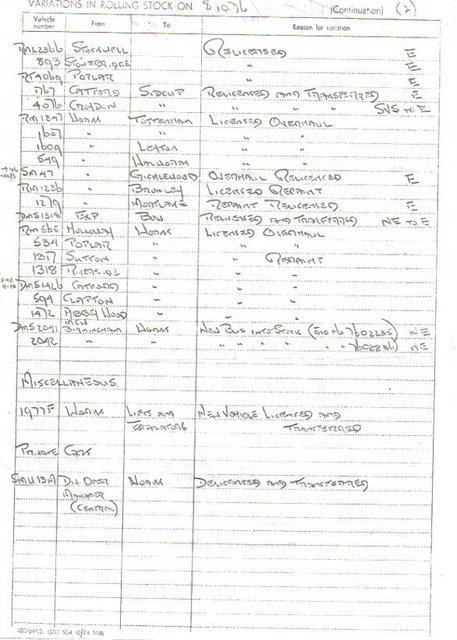 VARIATIONS IN ROLLING STOCK ON 8.10.76 (Continuation) (2)
Vehicle number From To Reason for variation
RML2366 STOCKWELL RELICENSED E
893 " E
RT4069 POPLAR " E
767 CATFORD SIDCUP RELICENSED AND TRANSFERRED E
4076 CROYDON " " " " SNS to E
RM1297 WORM TOTTENHAM LICENSED OVERHAUL
1607 " " " "
1609 " LEYTON " "
549 " HOLLOWAY " "
SM47 " CRICKLEWOOD OVERHAUL RELICENSED E
RM1236 " BROMLEY LICENSED REPAINT
1279 " MORTLAKE REPAINT RELICENSED E
DMS1515 EXP. BOW RELICENSED AND TRANSFERRED NE to E
RM565 HOLLOWAY WORM LICENSED OVERHAUL
534 POPLAR " " "
1317 SUTTON " " REPAINT
1318 RIVERSIDE " " "
DMS1426 CATFORD " " "
594 CLAPTON " " "
1492 ABBEY WOOD " " "
DMS2041 MCW BIRMINGHAM WORM NEW BUS INTO STOCK (ENG No 7602235) NE
2042 " " " " " " " NE
MISCELLANEOUS
1977F WORM LIFTS AND NEW VEHICLE LICENSED AND
TRANSFERRED
PRIVATE CARS
DIV OPER WORM DELICENSED AND TRANSFERRED
MANAGER
(CENTRAL)